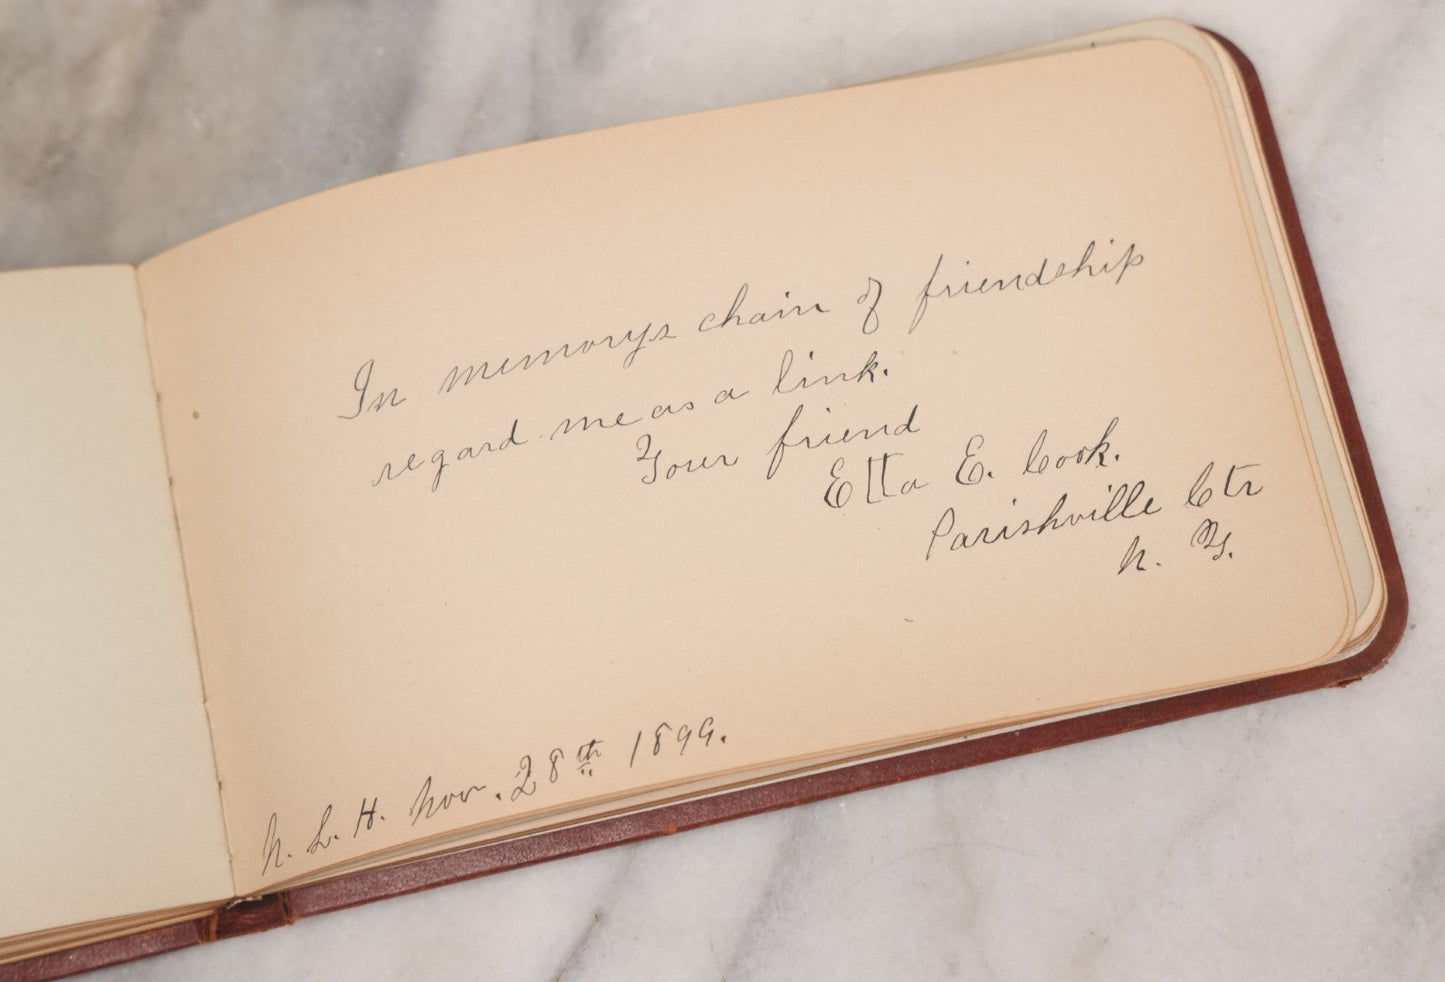 In memorys chain of friendship
regard me as a link.
Your friend
Etta E. Cook.
Parishville Ctr
N. Y.
N. L. H. Nov. 28th 1899.